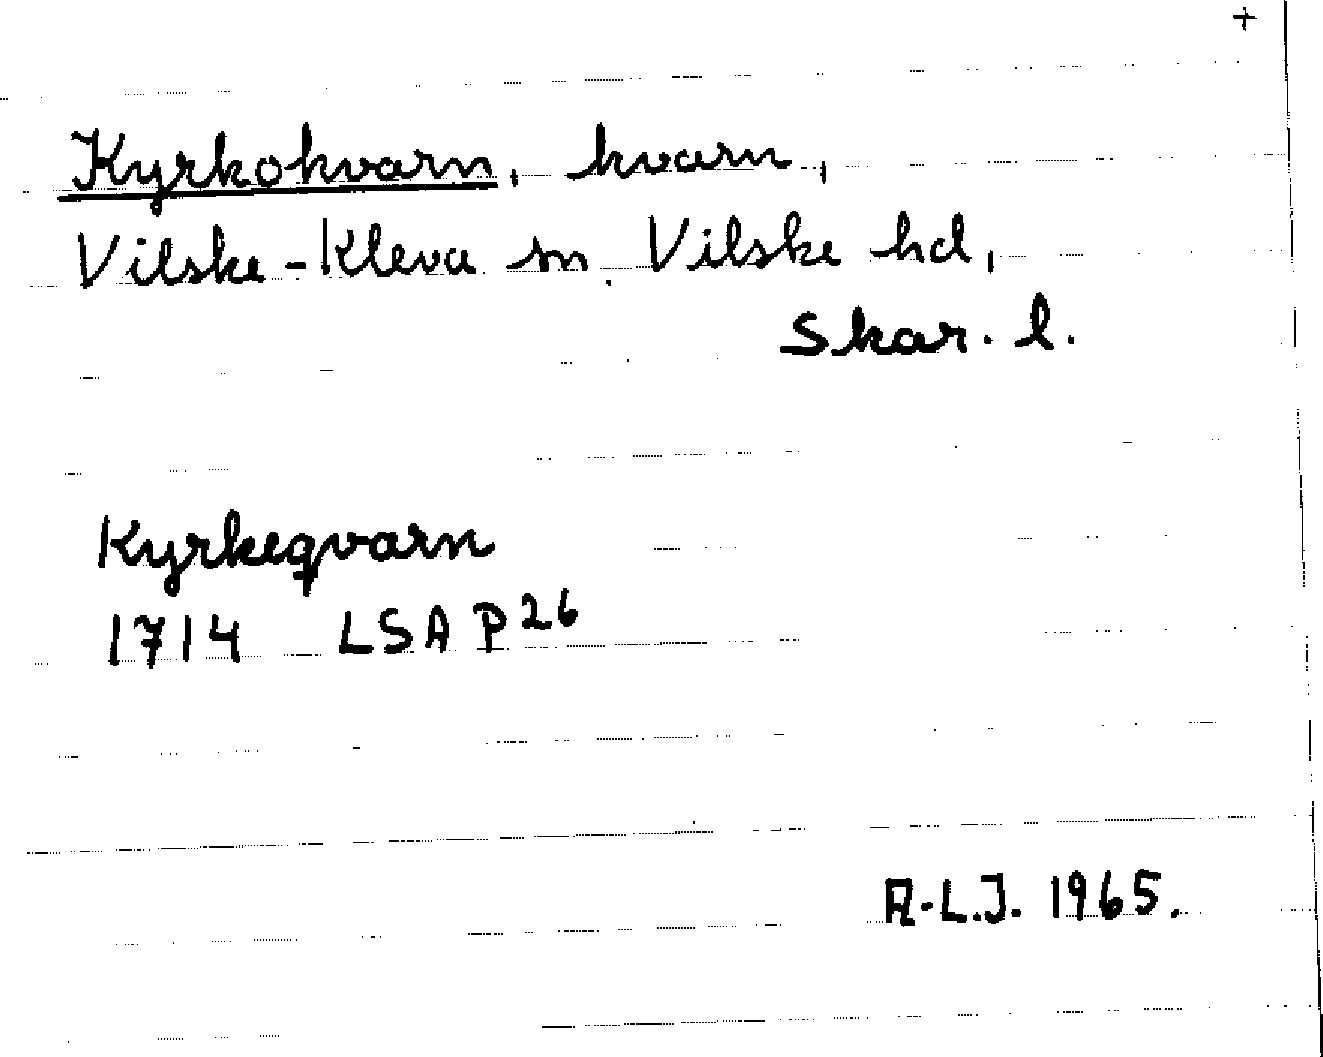 +
Kyrkokvarn, kvarn,
Vilske-Kleva sn. Vilske hd,
Skar. l.
Kyrkeqvarn
1714 LSA P 26
A-L.J. 1965.